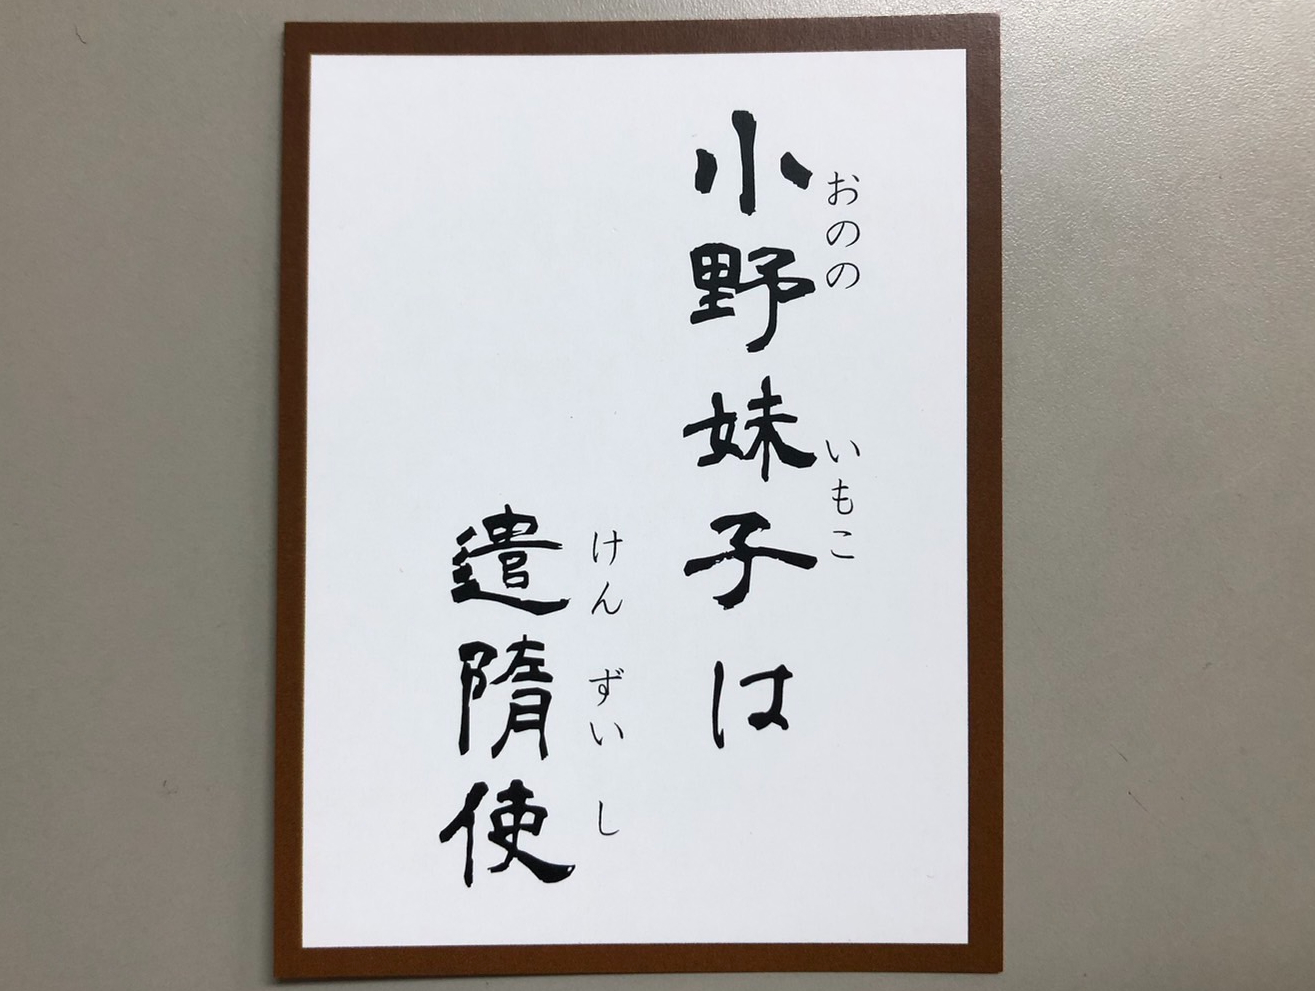 小野妹子は
おのの いもこ
遣隋使
けん ずい し